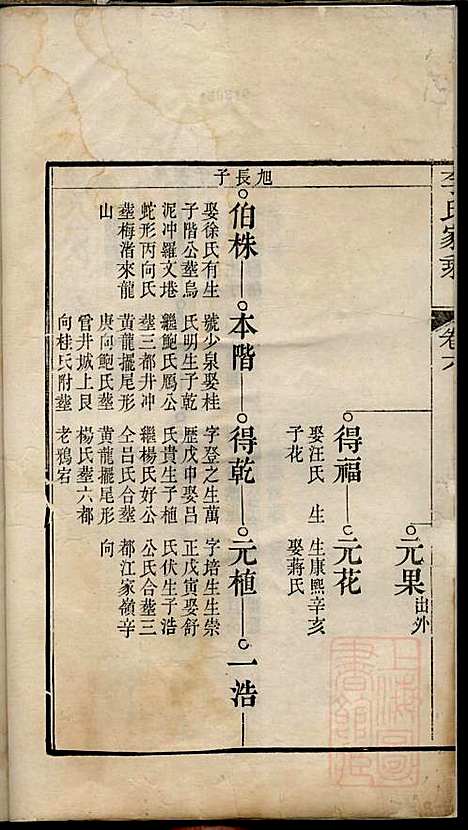 李氏家乘
卷六
元果
出外
得福
娶汪氏 生
子花
元花
生康熙辛亥
娶蔣氏
旭長子
伯株
娶徐氏有生
子階公塟烏
泥冲羅文塔
蛇形丙向氏
塟梅渚來龍
山
本階
號少泉娶桂
氏明生子乾
繼鮑氏鴈公
塟三都井冲
黄龍擺尾形
庚向鮑氏塟
曾井城上艮
向桂氏附塟
得乾
字登之生萬
歷戊申娶呂
氏貴生子植
繼楊氏好公
仝呂氏合塟
黄龍擺尾形
楊氏塟六都
老鴉宕
元植
字培生生崇
正戊寅娶舒
氏伏生子浩
公氏合塟三
都江家嶺辛
向
一浩